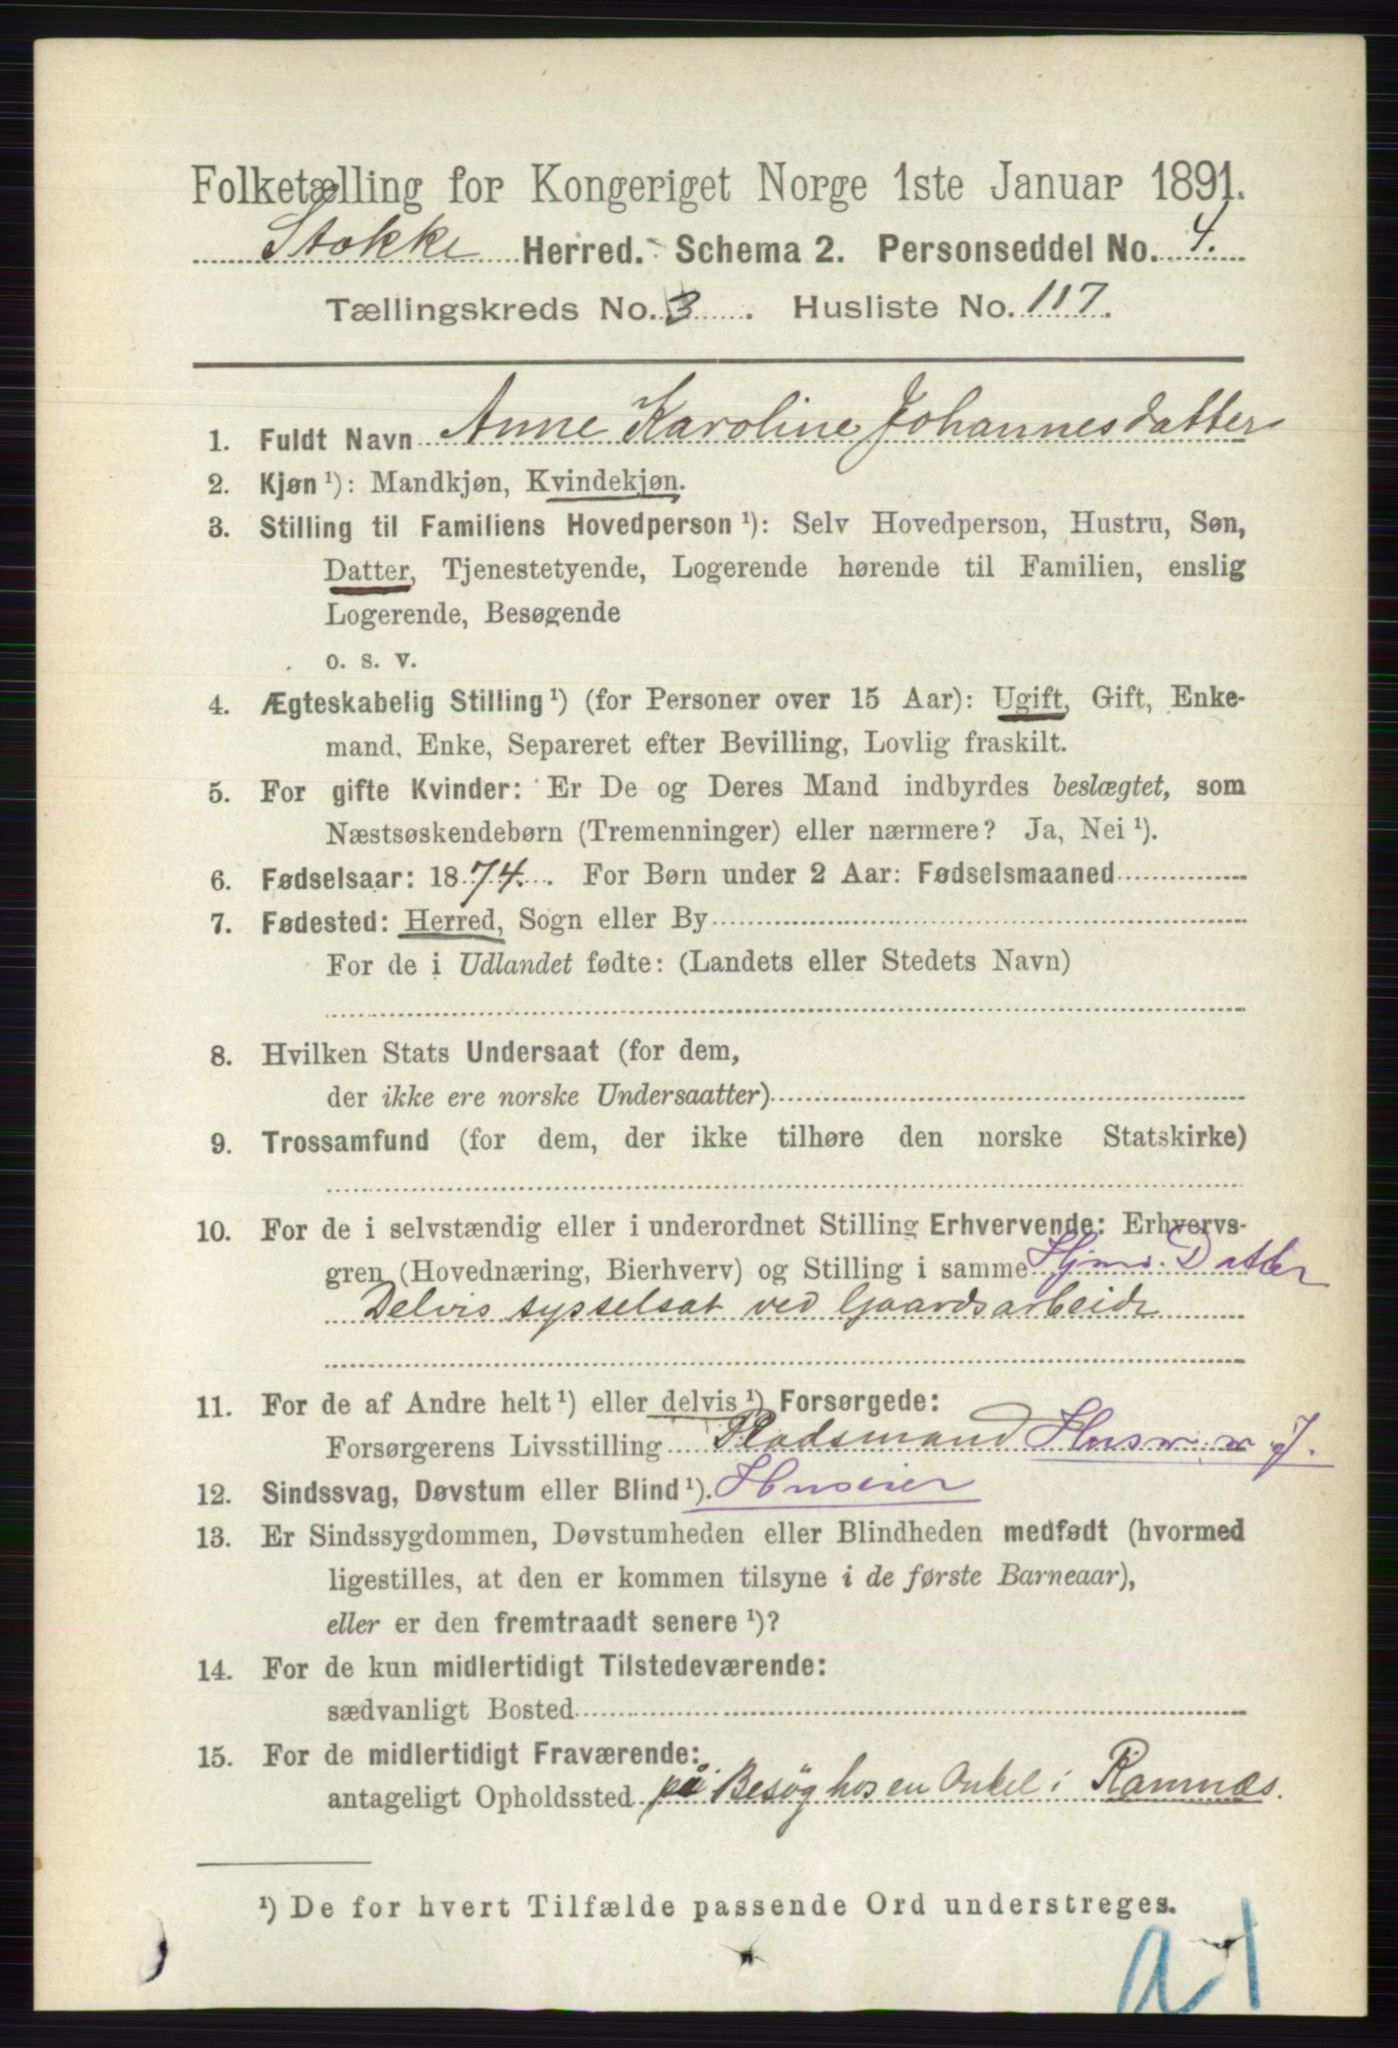 Folketælling for Kongeriget Norge 1ste Januar 1891.
Stokke Herred. Schema 2. Personseddel No. 4.
Tællingskreds No. 3. Husliste No. 117.
1. Fuldt Navn Anne Karoline Johannesdatter
2. Kjøn ¹): Mandkjøn, Kvindekjøn.
3. Stilling til Familiens Hovedperson ¹): Selv Hovedperson, Hustru, Søn,
Datter, Tjenestetyende, Logerende hørende til Familien, enslig
Logerende, Besøgende
o. s. v.
4. Ægteskabelig Stilling ¹) (for Personer over 15 Aar): Ugift, Gift, Enke-
mand, Enke, Separeret efter Bevilling, Lovlig fraskilt.
5. For gifte Kvinder: Er De og Deres Mand indbyrdes beslægtet, som
Næstsøskendebørn (Tremenninger) eller nærmere? Ja, Nei ¹).
6. Fødselsaar: 1874. For Børn under 2 Aar: Fødselsmaaned
7. Fødested: Herred, Sogn eller By
For de i Udlandet fødte: (Landets eller Stedets Navn)
8. Hvilken Stats Undersaat (for dem,
der ikke ere norske Undersaatter)
9. Trossamfund (for dem, der ikke tilhøre den norske Statskirke)
10. For de i selvstændig eller i underordnet Stilling Erhvervende: Erhvervs-
gren (Hovednæring, Bierhverv) og Stilling i samme Hjms. Datter
Delvis sysselsat ved Gaardsarbeide
11. For de af Andre helt ¹) eller delvis ¹) Forsørgede:
Forsørgerens Livsstilling Pladsmand Husm. m. J.
12. Sindssvag, Døvstum eller Blind ¹). Huseier
13. Er Sindssygdommen, Døvstumheden eller Blindheden medfødt (hvormed
ligestilles, at den er kommen tilsyne i de første Barneaar),
eller er den fremtraadt senere ¹)?
14. For de kun midlertidigt Tilstedeværende:
sædvanligt Bosted
15. For de midlertidigt Fraværende:
antageligt Opholdssted på Besøg hos en Onkel i Ramnæs.
¹) De for hvert Tilfælde passende Ord understreges.